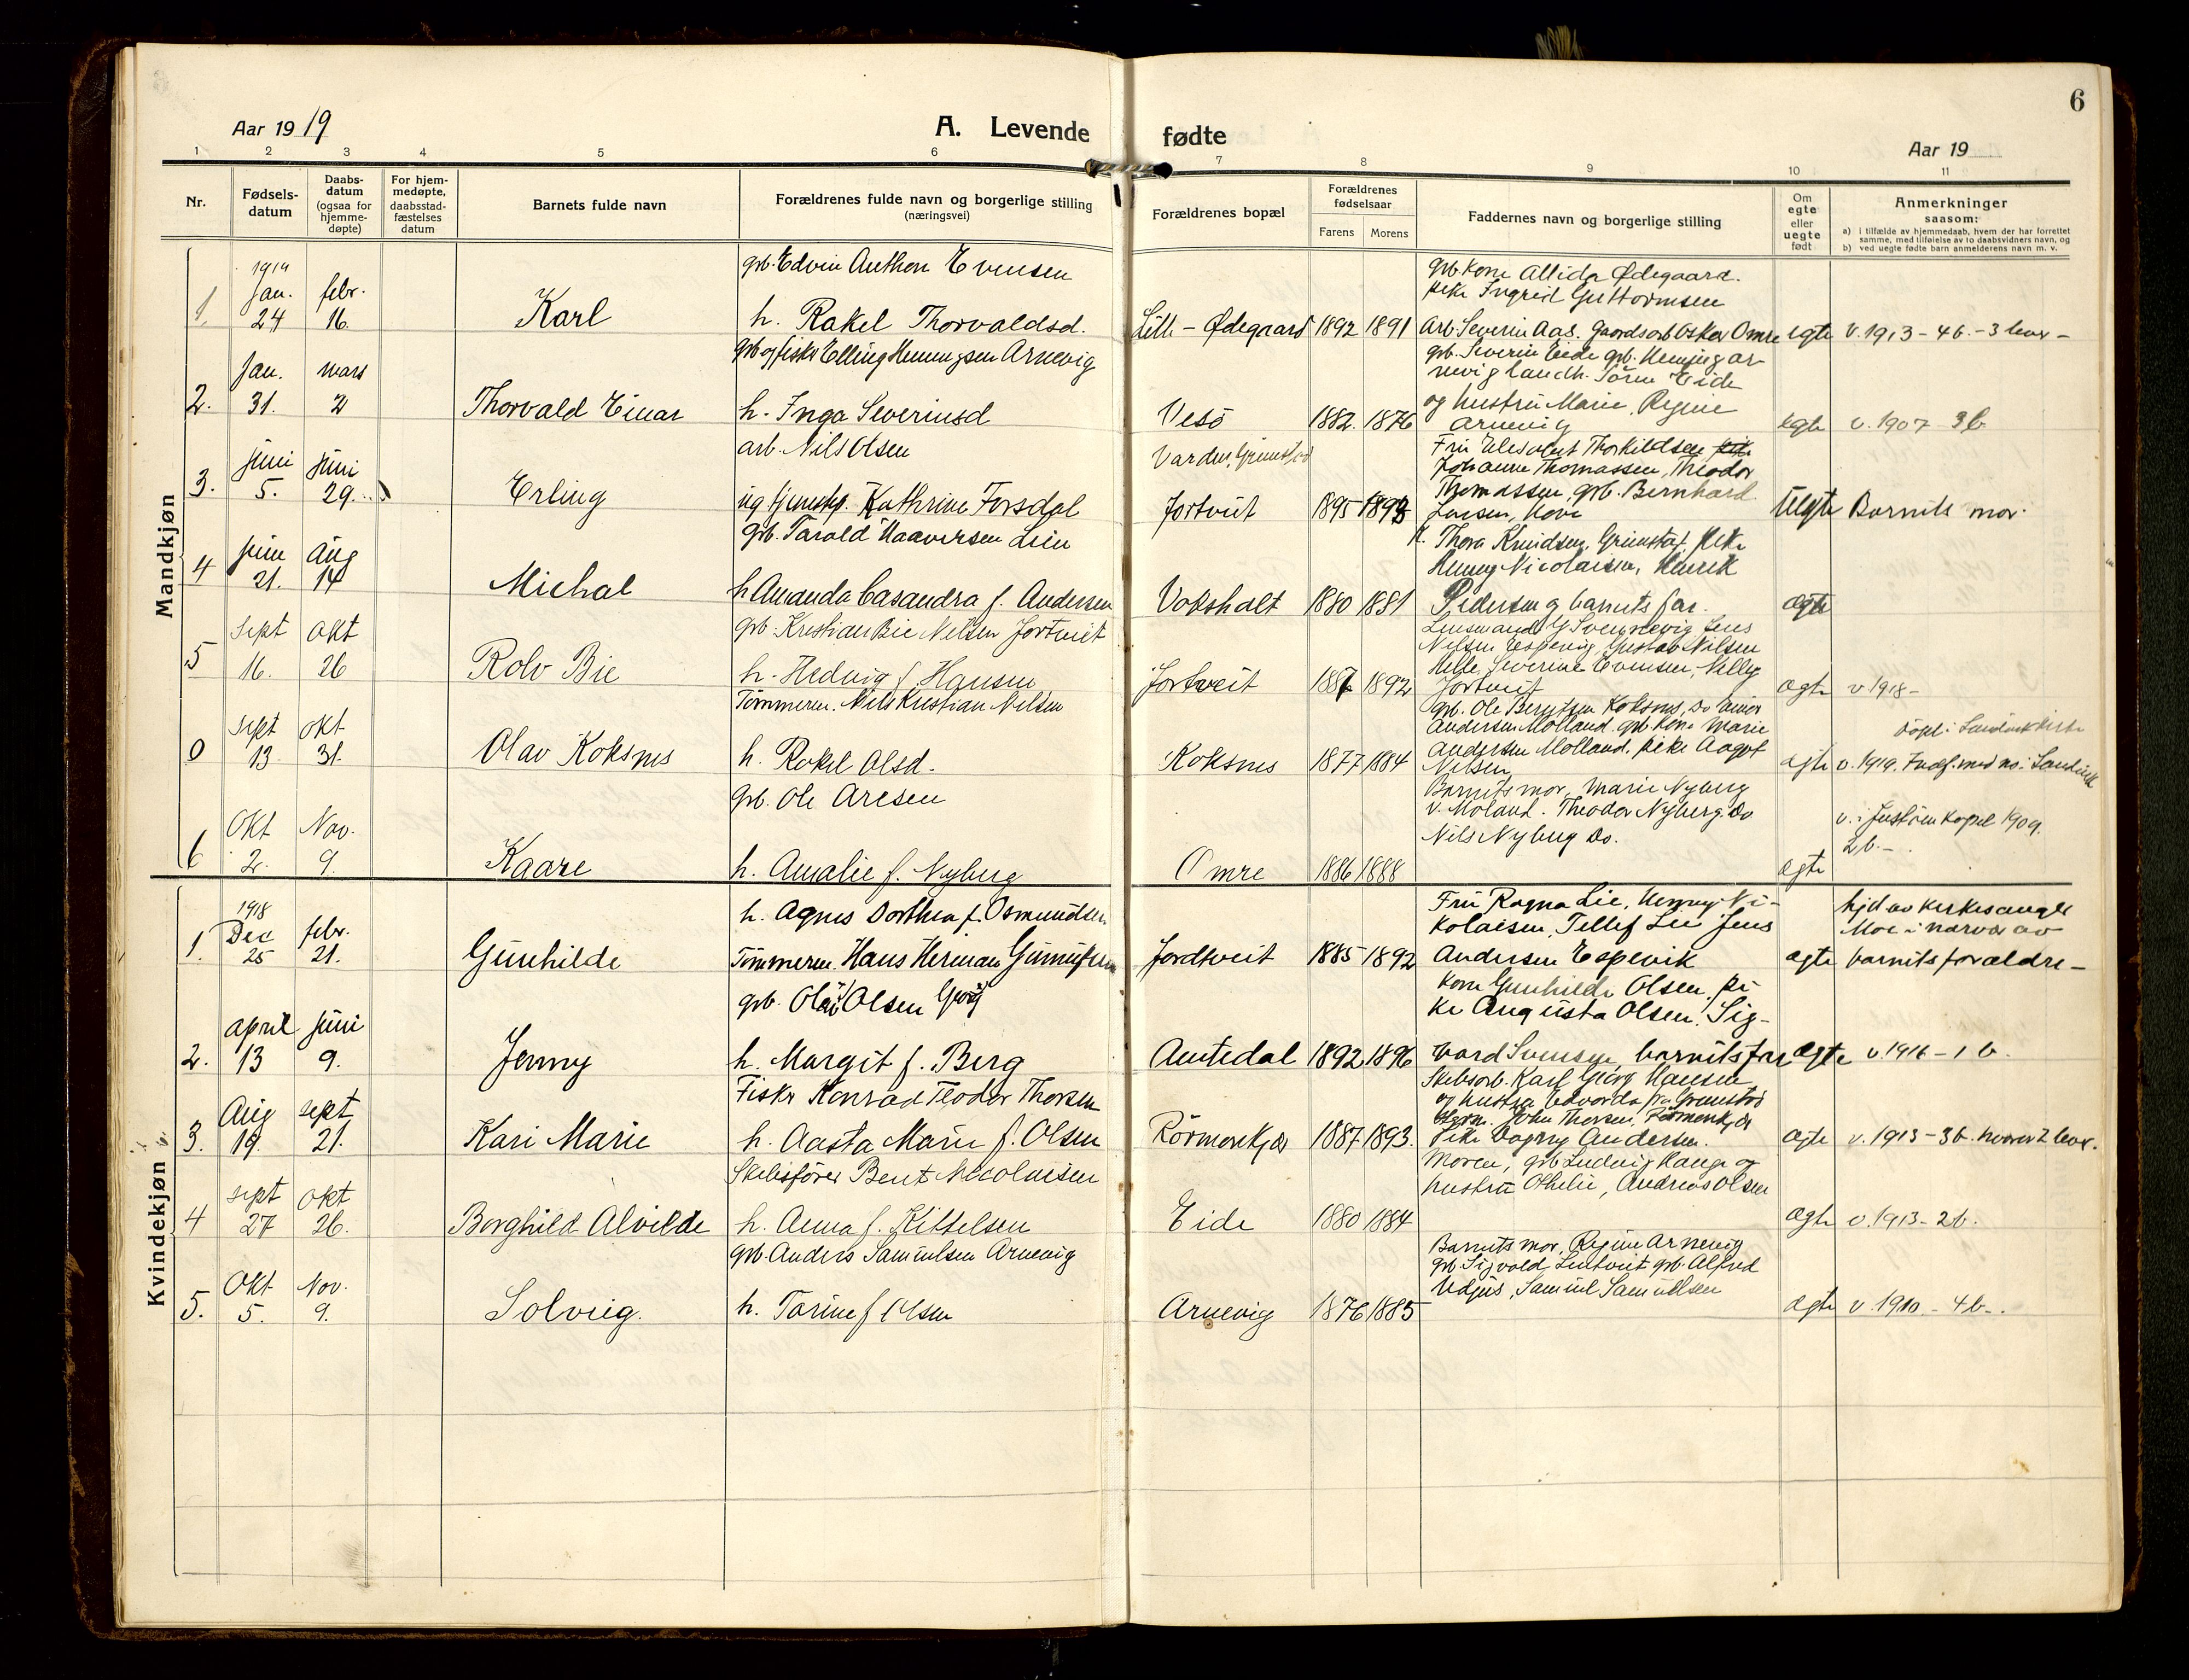 6
Aar 1919
A. Levende fødte
Aar 19
1 2 3 4 5 6 7 8 9 10 11
Nr.
Fødsels-
datum
Daabs-
datum
(ogsaa for
hjemme-
døpte)
For hjem-
medøpte,
daabsstad-
fæstelses
datum
Barnets fulde navn
Forældrenes fulde navn og borgerlige stilling
(næringsvei)
Forældrenes bopæl
Forældrenes
fødselsaar
Farens Morens
Faddernes navn og borgerlige stilling
Om
egte
eller
uegte
født
Anmerkninger
saasom:
a) i tilfælde av hjemmedaab, hvem der har forrettet
samme, med tilføielse av to daabsvidners navn, og
b) ved uegte fødte barn anmelderens navn m. v.
Mandkjøn
1919
1. Jan. 24 febr. 16.
Karl
grb. Edvin Anthon Evensen
h. Rakel Thorvaldsd.
Ødegaard 1892 1891
grb. kone Ødegaard.
pike Ingrid Guttormsen
arb. Severin Aas. Oskar Omre
egte v. 1913 - 4 b. - 3 lever -
2. Jan. 31. mars 2
Thorvald Einar
grb og fisker Elling Henningsen Arnevig
h. Inga Severinsd
Vesö 1882. 1876
grb. Severin Eide grb. Henning Ar-
nevig landh. Sören Eide
og hustru Marie, Regine
Arnevig
egte v. 1907 3 b
3. Juni 5. Juni 29.
Erling
arb. Nils Olsen
ug Kathrine Forsdal
Vardu, Grimstad
Jortveit 1895 1893
Fru Thorkildsen
Johanne Thomassen, Theodor
Thomassen, grb. Bernhard
Larsen,
Uegte Barnets mor.
4 Juni 21. Aug 14
Michal
grb. Tarald Haaversen Lien
h Amanda Casandra f. Andersen
Voksholt 1880 1881
Thora Knudsen, Grimstad, pike
Henny Nicolaisen, Henrik
Pedersen og barnets far.
ægte
5 Sept 16. Okt 26
Rolv Bie
grb. Kristian Bie Nilsen Jortveit
h. Hedvig f. Hansen
Jortveit 1887 1892
Lensmand Svennevig Jens
Nilsen Espevig, Gustav Nilsen
Helle, Severine Evensen, Nelly
Jortveit
ægte v 1918 -
0 Sept 13 Okt 31.
Olav Koksnes
Tömmerm. Nils Kristian Nilsen
h. Rakel Olsd.
Koksnes 1877 1884
grb. Ole Berntsen Koksnes,
Andersen Molland. grb. kone Marie
Andersen Molland, pike Aagot
Nilsen
ægte v. 1919.
6 Okt 2. Nov. 9.
Kaare
grb. Ole Aresen
h. Amalie f. Nyberg
Omre 1886 1888
Barnets mor, Marie Nyberg
v. Moland. Theodor Nyberg Do
Nils Nyberg Do.
ægte
v. i Justöen kapel 1909.
2 b. -
Kvindekjøn
1918
1. Dec 25 febr. 21.
Gunhilde
h. Agnes Dorthea f. Osmundsen
Tömmerm. Hans Herman
Jordtveit 1885 1892
Fru Ragna Lie, Henny Ni-
kolaisen, Tellef Lie Jens
Andersen Espevik
ægte
hjd av kirkesanger
Moe i nærvær av
barnets forældre -
2. April 13 Juni 9.
Jenny
grb. Olav Olsen
h. Margit f. Berg
Amtedal 1892 1896
kone Gunhilde Olsen, pi-
ke Augusta Olsen. Sig-
vard Svensen, barnets far
ægte v 1916 - 1 b.
3. Aug 19. sept 21.
Kari Marie
Fisker Konrad Teodor Thorsen
h. Aasta Marie f. Olsen
Rörmenkjær 1887. 1893.
Skibsarb. Karl Georg Hansen
og hustru Edvarda fra Grimstad
John Thorsen, Rörmenkjær
Pike Dagny Andersen.
ægte v. 1913 - 3 b. hvorav 2 lever.
4 sept 27 Okt 26.
Borghild Alvilde
Skibsförer Bent Nicolaisen
h. Anna f. Kittelsen
Eide 1880 1884
Moren, grb. Ludvig Hauge og
hustru Othilie, Andreas Olsen
ægte v. 1913 - 2 b.
5. Okt 5. Nov. 9.
Solveig.
grb. Anders Samuelsen Arnevig
h. Tarine f Olsen
Arnevig 1876 1885
Barnets mor, Regine Arnevig
grb Sigvald Lintveit grb. Alfred
Udjus, Samuel Samuelsen
ægte v. 1910 - 4 b -.